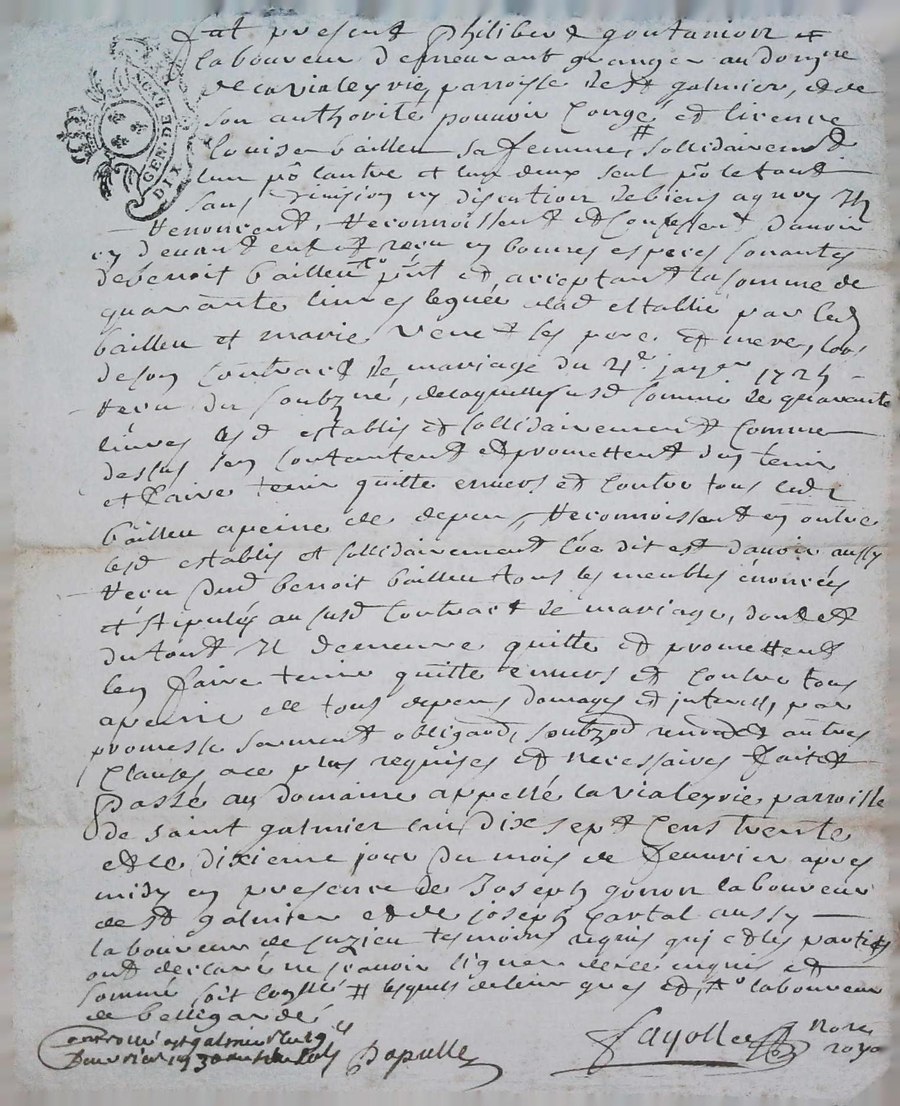 GEN. DE
DIX
fut present Philibert goutanoir #
laboureur demeurant granger au domaine
de la vialeyrie, parroisse de St galmier, et de
son authorité pouvoir Congé et licence
Louise bailleu sa femme, sollidairement
lun po lautre et lun deux seul po le tout
sans division ny discution de biens aquoy ils
renoncent, reconnoissent et Confessent davoir
cy devant eut et receu en bonnes especes sonantes
de benoit bailleu pnt et acceptant la somme de
quarante livres leguée alad establie par led
bailleu et marie ses pere et mere, lors
de son Contract de mariage du 21e janer
receu du soubzné, de laquelle susd somme de quarante
livres lesd establis et sollidairement comme
dessus sen contentent et promettent den tenir
et faire tenir quitte envers et contre tous led
bailleu apeine de depens, reconnoissent en outre
lesd establis et sollidairement Coe dit est davoir aussy
receu dud benoit bailleu tous les meubles énoncés
et stipulés au susd Contract de mariage, dont et
du tout il demeure quitte et promettent
len faire tenir quitte envers et contre tous
apeine de tous depens domages et interests, par
promesse serment obligaon, soubzon renoon et autres
Clauses ace plus requises et necessaires fait et
Passé au domaine appellé la vialeyrie parroisse
de saint galmier lan dix sept Cens trente
et le dixieme jour du mois de fevrier apres
midy en presence de Joseph gonon laboureur
de St galmier et de joseph aussy
laboureur de Cuzieu tesmoins requis qui et les parties
ont declaré ne scavoir signer de ce enquis et
sommé soit Conllé # lesquels de leur gres et, # laboureur
de bellegarde
Controllé a St galmier le
fevrier 1730
Dapulle
Fayolle
Nore
royal